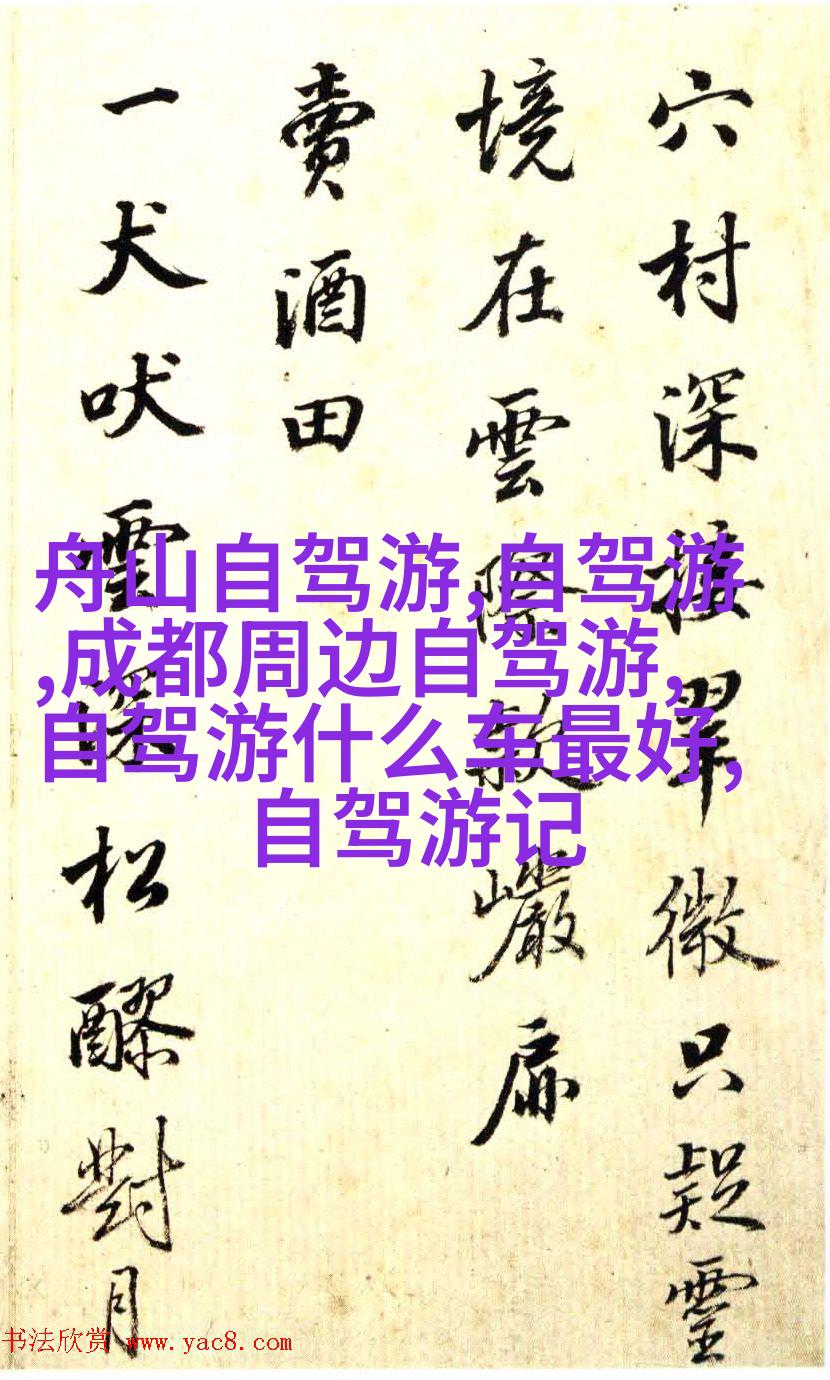 穴村深接翠微只疑靈
境在雲際敞巖扉
賣酒田
一犬吠松醪對月
舟山自驾游,自驾游
,成都周边自驾游,
自驾游什么车最好,
自驾游记
书法欣赏 www.yac8.com